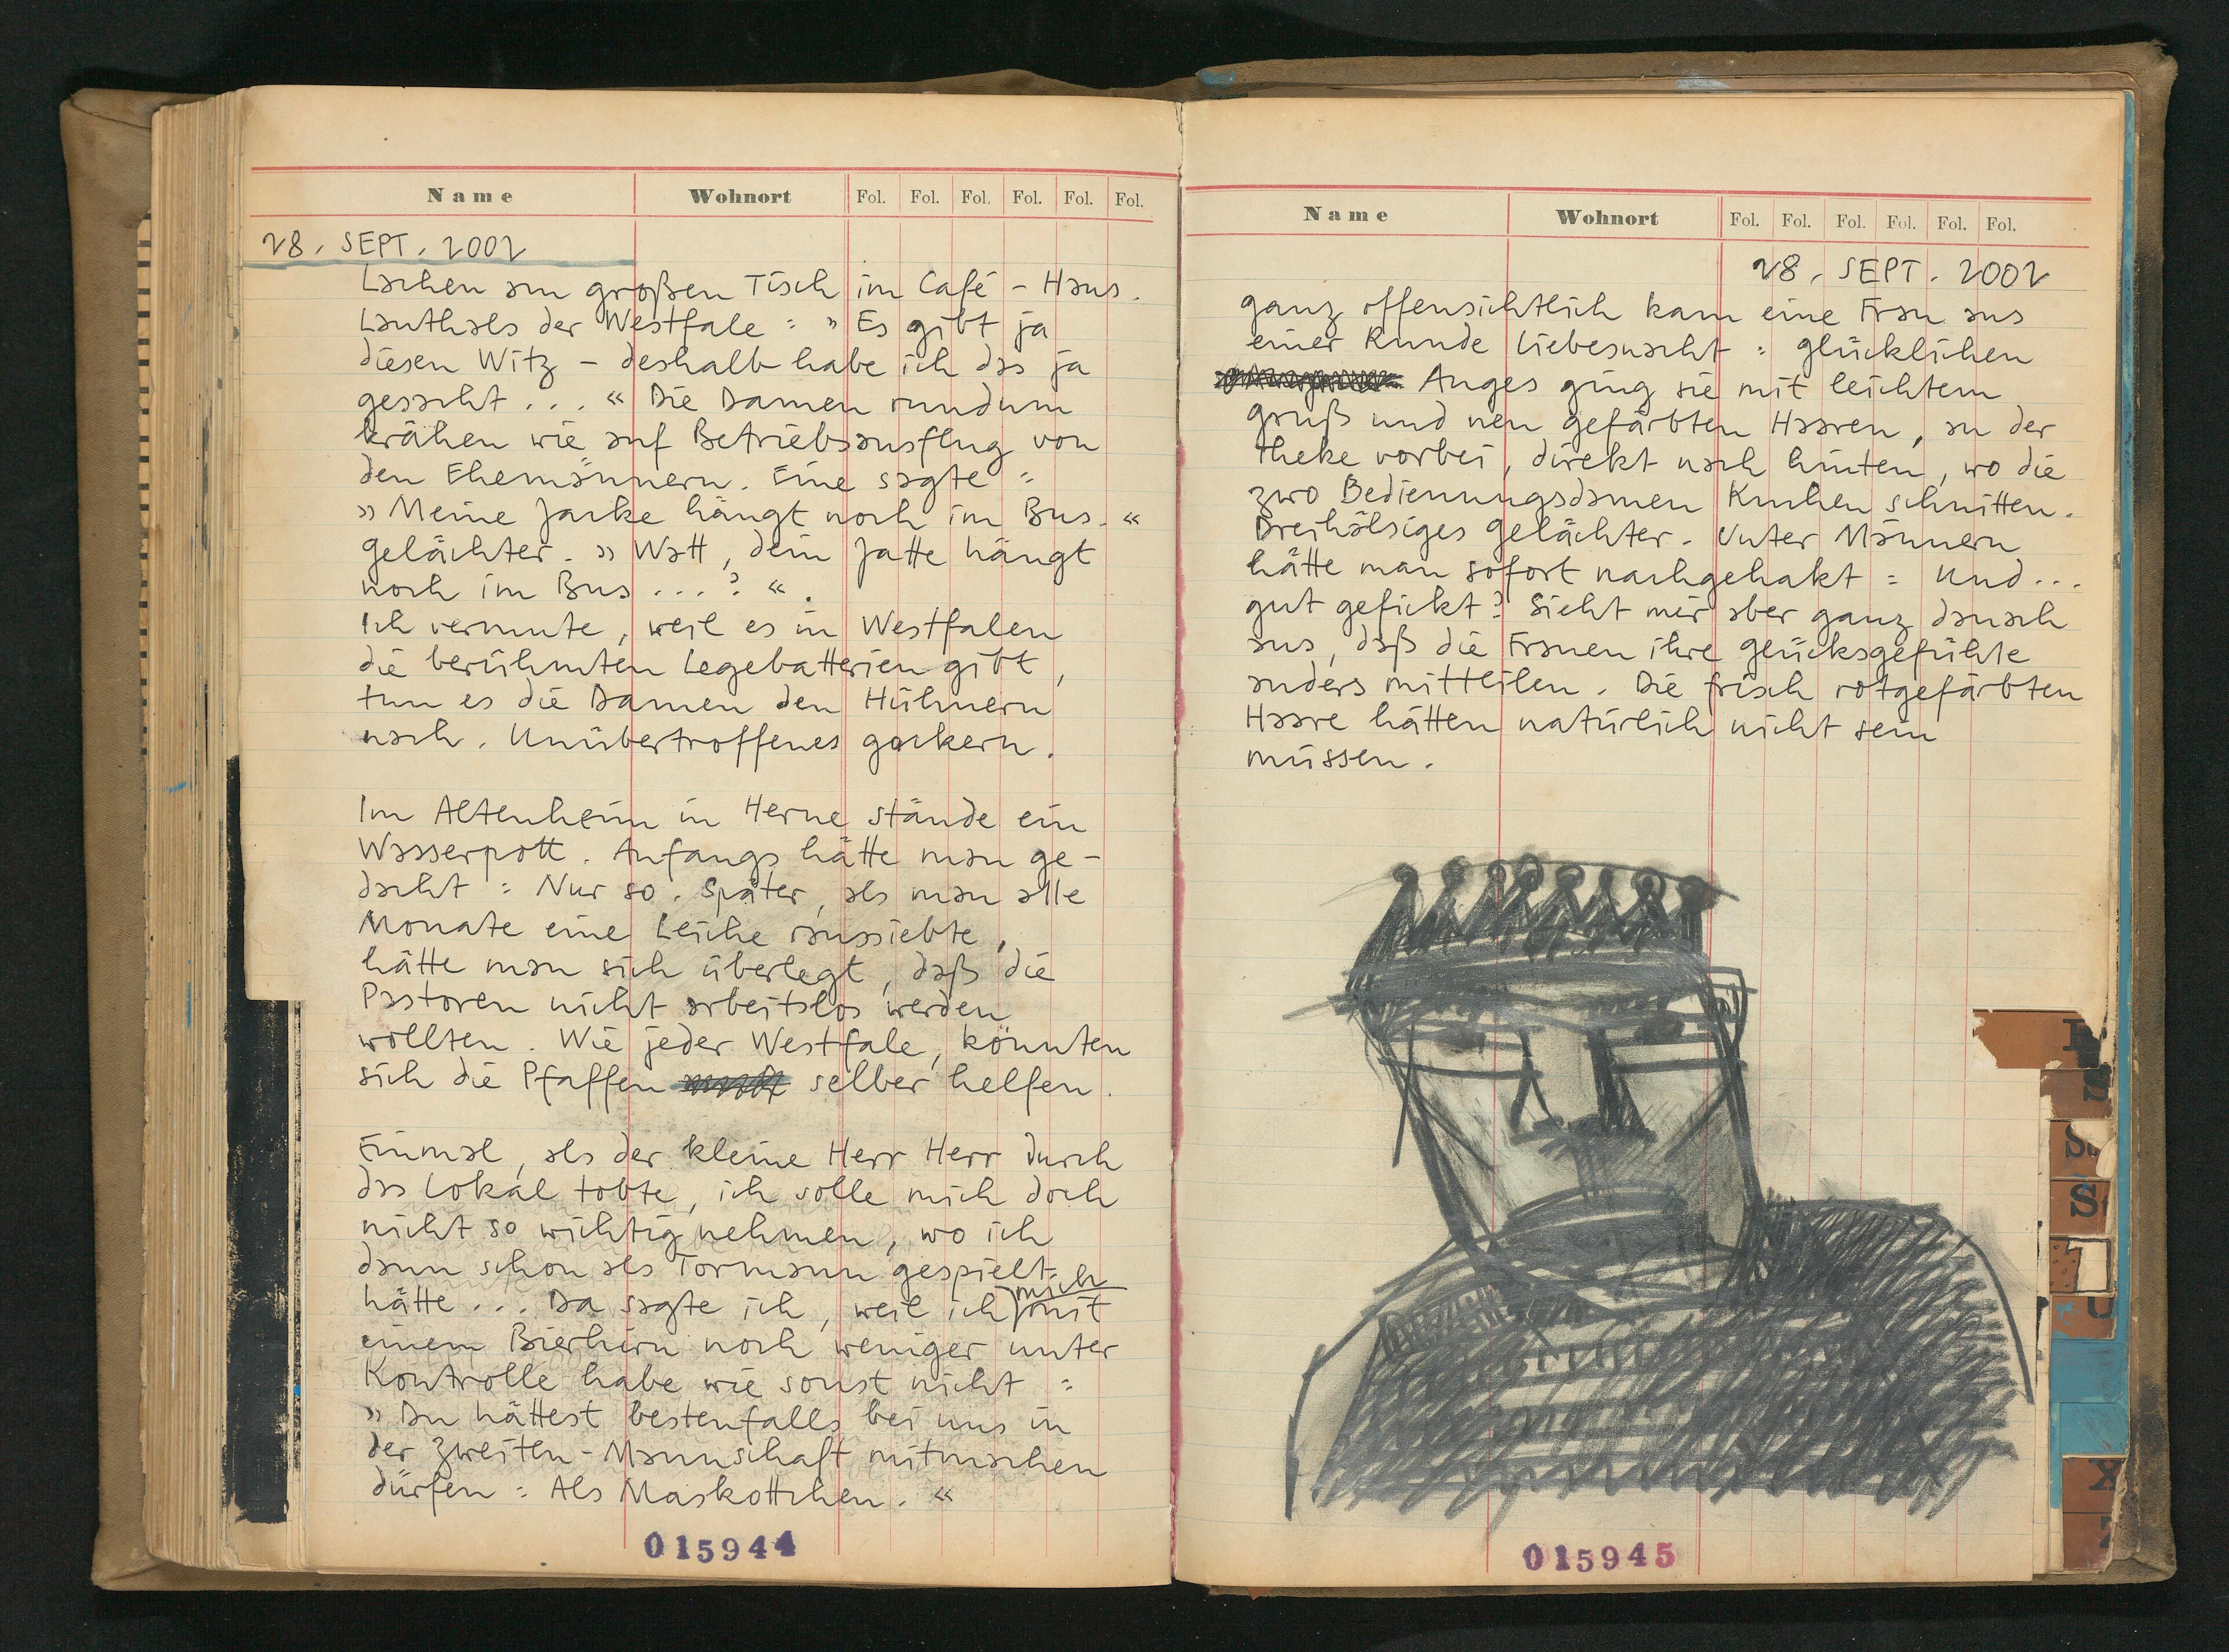 Name Wohnort Fol. Fol. Fol. Fol. Fol. Fol.
28. SEPT. 2002
Lachen am großen Tisch im Café - Haus.
Lauthals der Westfale : » Es gibt ja
diesen Witz - deshalb habe ich das ja
gesacht ... « Die Damen rundum
krähen wie auf Betriebsausflug von
den Ehemännern. Eine sagte :
» Meine Jacke hängt noch im Bus. «
Gelächter. » Watt, dein Jatte hängt
noch im Bus ...? «.
Ich vermute, weil es in Westfalen
die berühmten Legebatterien gibt,
tun es die Damen den Hühnern
nach. Unübertroffenes gackern.
Im Altenheim in Herne stände ein
Wasserpott. Anfangs hätte man ge-
dacht : Nur so. Später, als man alle
Monate eine Leiche raussiebte,
hätte man sich überlegt, daß die
Pastoren nicht arbeitslos werden
wollten. Wie jeder Westfale, könnten
sich die Pfaffen selber helfen.
Einmal, als der kleine Herr Herr durch
das Lokal tobte, ich solle mich doch
nicht so wichtig nehmen, wo ich
dann schon als Tormann gespielt
hätte ... Da sagte ich, weil ich mich mit
einem Bierhirn noch weniger unter
Kontrolle habe wie sonst nicht :
» Du hättest bestenfalls bei uns in
der zweiten - Mannschaft mitmachen
dürfen : Als Maskottchen. «
015944
Name Wohnort Fol. Fol. Fol. Fol. Fol. Fol.
28. SEPT. 2002
ganz offensichtlich kam eine Frau aus
einer Runde Liebesnacht : glücklichen
Auges ging sie mit leichtem
gruß und neu gefärbten Haaren, an der
Theke vorbei, direkt nach hinten, wo die
zwo Bedienungsdamen Kuchen schnitten.
Dreihälsiges gelächter. Unter Männern
hätte man sofort nachgehakt : Und...
gut gefickt? Sieht mir aber ganz danach
aus, daß die Frauen ihre glücksgefühle
anders mitteilen. Die frisch rotgefärbten
Haare hätten natürlich nicht sein
müssen.
015945